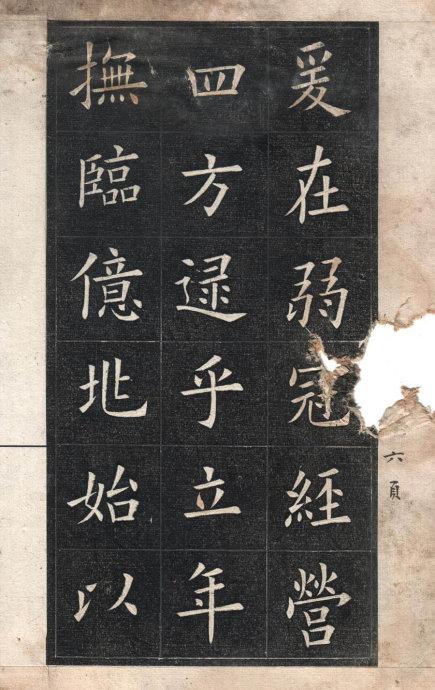 爰在弱冠經營
四方逯乎立年
撫臨億兆始以
六頁